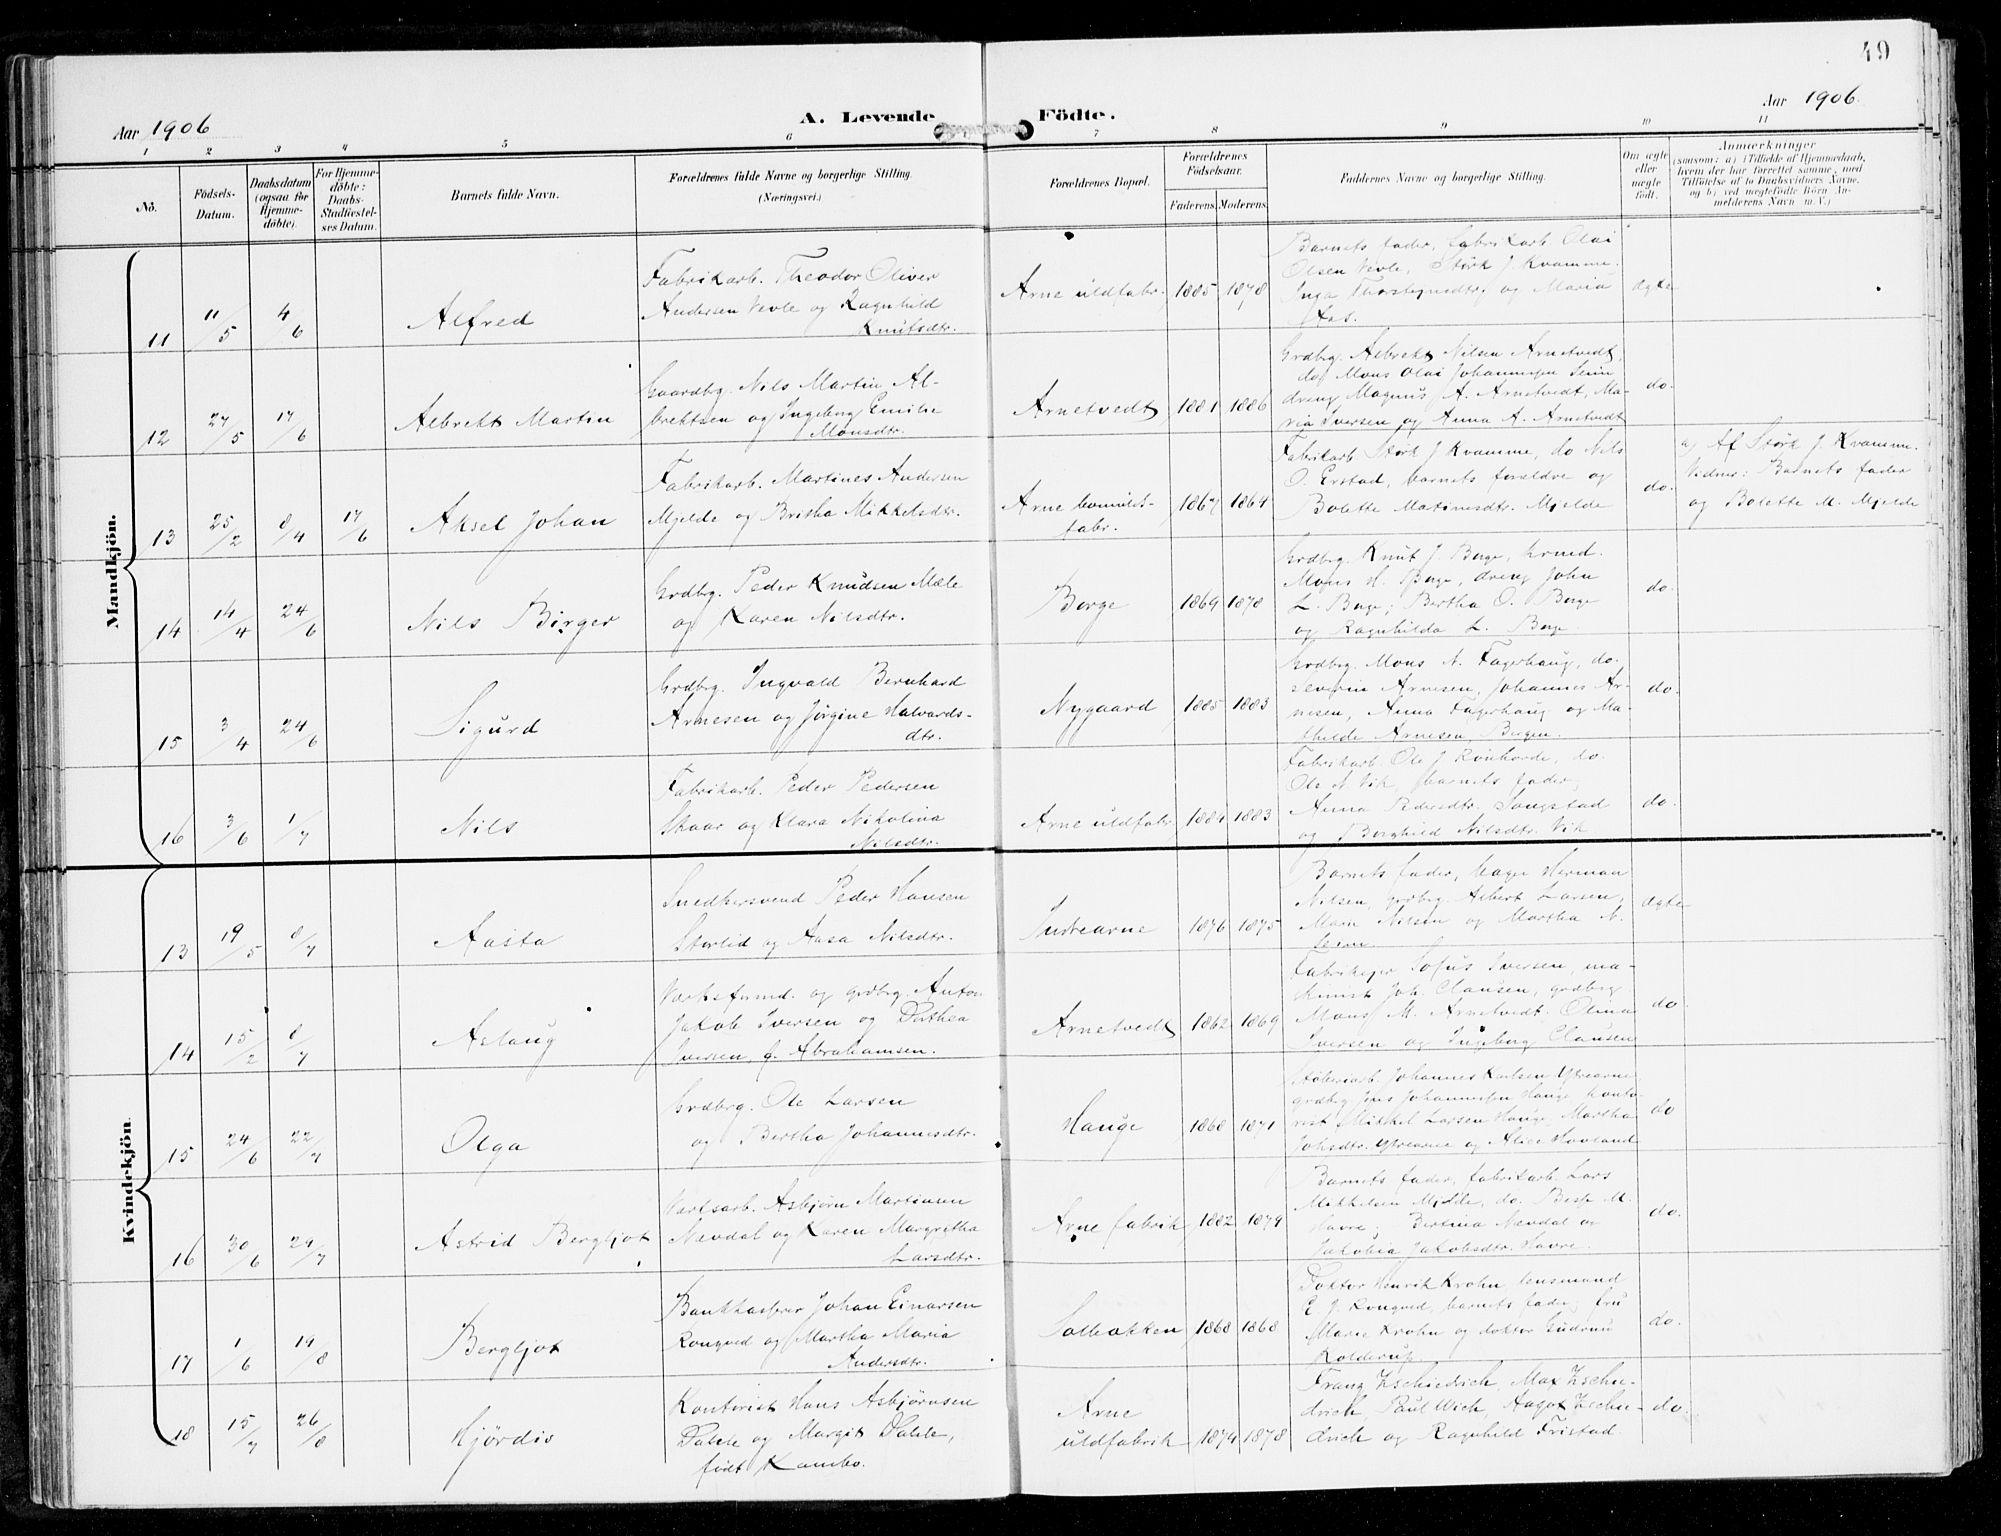 49
Aar 1906
A. Levende
Födte.
Aar 1906.
1 2 3 4 5 6 7 8 9 10 11
No.
Födsels-
Datum.
Daabsdatum
(ogsaa for
Hjemme-
döbte).
For Hjemme-
döbte:
Daabs-
Stadfæstel-
ses Datum.
Barnets fulde Navn.
Forældrenes fulde Navne og borgerlige Stilling.
(Næringsvei.)
Forældrenes Bopæl.
Forældrenes
Födselsaar.
Faderens. Moderens.
Faddernes Navne og borgerlige Stilling.
Om ægte
eller
uægte
født.
Anmærkninger
(saasom: a) i Tilfælde af Hjemmedaab,
hvem der har forrettet samme, med
Tilföielse af to Daabsvidners Navne,
og b) ved uægtefödte Börn An-
melderens Navn m. V.)
Mandkjön.
11 11/5 4/6 Alfred
Fabrikarb. Theodor Oliver
Andersen Vevle og Ragnhild
Knutsdtr.
Arne uldfabr. 1885 1878
Barnets fader, fabrikarb. Olai
Olsen Vevle, Størk J. Kvamme.
Inga Thorsteinsdtr. og Maria
Aas.
ægte
12 27/5 17/6 Albrekt Martin
Gaardbg. Nils Martin Al-
brektsen og Ingeborg Emilie
Monsdtr.
Arnetvedt 1881 1886
Grdbrg. Albrekt Nilsen Arnetvedt,
do. Mons Olai Johannesen Seim
dreng Magnus A. Arnetvedt, Ma-
ria Iversen og Anna A. Arnetvedt
do.
13 25/2 8/4 17/6 Aksel Johan
Fabrikarb. Martines Andersen
Mjelde og Britha Mikkelsdtr.
Arne bomulds-
fabr.
1867 1864
Fabrikarb Størk J Kvamme, do Nils
O. Erstad, barnets forældre og
Bolette Matinesdtr. Mjelde
do.
a) Af Størk J. Kvamme.
Vidner: Barnets fader
og Bolette M. Mjelde
14 14/4 24/6 Nils Birger
Grdbrg. Peder Knudsen Mæle
og Karen Nilsdtr.
Borge 1869 1878
Grdbrg. Knut J. Borge,
Mons N. Borge, dreng John
L. Borge; Bertha O. Borge
og Ragnhilda L. Borge
do.
15 3/4 24/6 Sigurd
Grdbrg. Ingvald Bernhard
Arnesen og Jørgine Halvards-
dtr.
Nygaard 1885 1883
Grdbrg. Mons A. Fagerhaug, do.
Severin Arnesen, Johannes Ar-
nesen, Anna Fagerhaug og Ma-
thilde Arnesen, Bergen.
do.
16 3/6 1/7 Nils
Fabrikarb. Peder Pedersen
Skaar og Klara Nikolina
Nilsdtr.
Arne uldfabr 1884 1883
Fabrikarb. Ole J. Rønhovde, do.
Ole N Vik, barnets fader,
Anna Pedersdtr. Songstad
og Borghild Nilsdtr. Vik
do.
Kvindekjön.
13 19/5 8/7 Aasta
Snedkersvend Peder Hansen
Storlid og Aasa Nilsdtr.
Indrearne 1876 1875
Barnets fader, bager Herman
Nilsen, grdbrg. Albert Larsen,
Marie Nilsen og Martha N.
Seim.
ægte
14 15/2 8/7 Aslaug
Værksfmd. og grdbrg. Anton
Jakob Iversen og Dorthea
Iversen f. Abrahamsen.
Arnetvedt 1862 1869
Fabrikejer Sofus Iversen, ma-
skinist Joh. Clausen, grdbrg
Mons M. Arnetvedt. Olina
Iversen og Ingeborg Clausen
do.
15 24/6 22/7 Olga
Grdbrg. Ole Larsen
og Bertha Johannesdtr.
Hauge 1868 1871
Støberiarb. Johannes Karlsen Ytrearne,
grdbrg Jens Johannesen Hauge, konto-
rist Mikkel Larsen Hauge, Martha
Johsdtr. Ytrearne og Alice Hovland
do
16 30/6 29/7 Astrid Bergljot
Værksarb. Asbjørn Martinsen
Nævdal og Karen Margretha
Larsdtr.
Arne fabrik 1882 1879
Barnets fader, fabrikarb. Lars
Mikkelsen Mjelde, do. M.
Havre; Bertina Nævdal og
Jakobia Jakobsdtr. Havre.
do.
17 1/6 19/8 Bergljot
Bankkasserer Johan Einarsen
Rongved og Martha Maria
Andersdtr.
Solbakken 1868 1868
Doktor Henrik Krohn, lensmand
E J. Rongved, barnets fader, fru
Marie Krohn og doktor Gudrun
Kolderup.
do.
18 15/7 26/8 Hjørdis
Kontorist Hans Asbjørnsen
Dahle og Margit Dahle,
født Kambo.
Arne
uldfabrik
1879 1878
Franz Zschiedrich, Max Zschie-
drich, Paul Wich, Aagot Zschie-
drich og Ragnhild Fristad.
do.